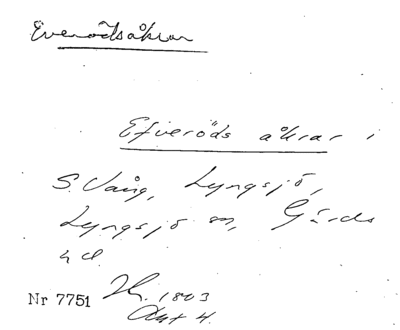 Everödsåkrar
Efveröds åkrar i
S. Vång, Lyngsjö,
Lyngsjö sn, Gärds
hd.
Nr 7751 1803
Akt 4.